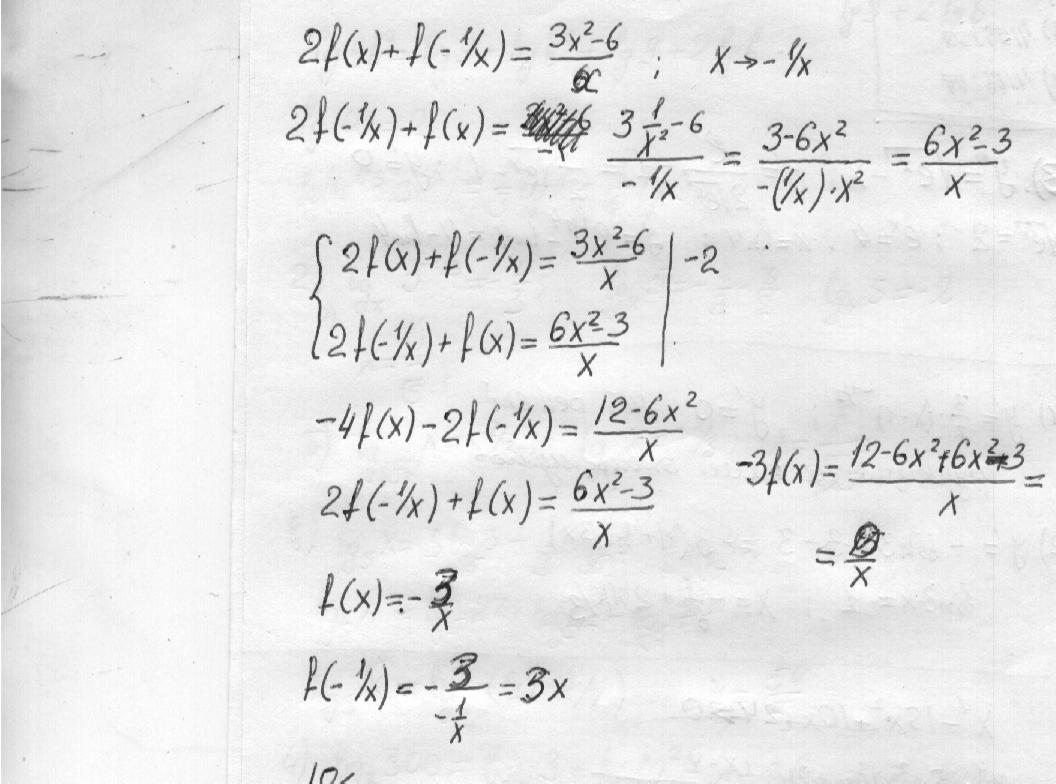 2f(x)+f(-1/x)= (3x²-6)/x ; x→-1/x
2f(-1/x)+f(x)= (3 1/x² -6)/(-1/x) = (3-6x²)/(-(1/x)·x²) = (6x²-3)/x
{ 2f(x)+f(-1/x)= (3x²-6)/x | -2
2f(-1/x)+f(x)= (6x²-3)/x |
-4f(x)-2f(-1/x)= (12-6x²)/x
2f(-1/x)+f(x)= (6x²-3)/x
-3f(x)= (12-6x²+6x²-3)/x =
= 9/x
f(x)=-3/x
f(-1/x)=-3/(-1/x)=3x